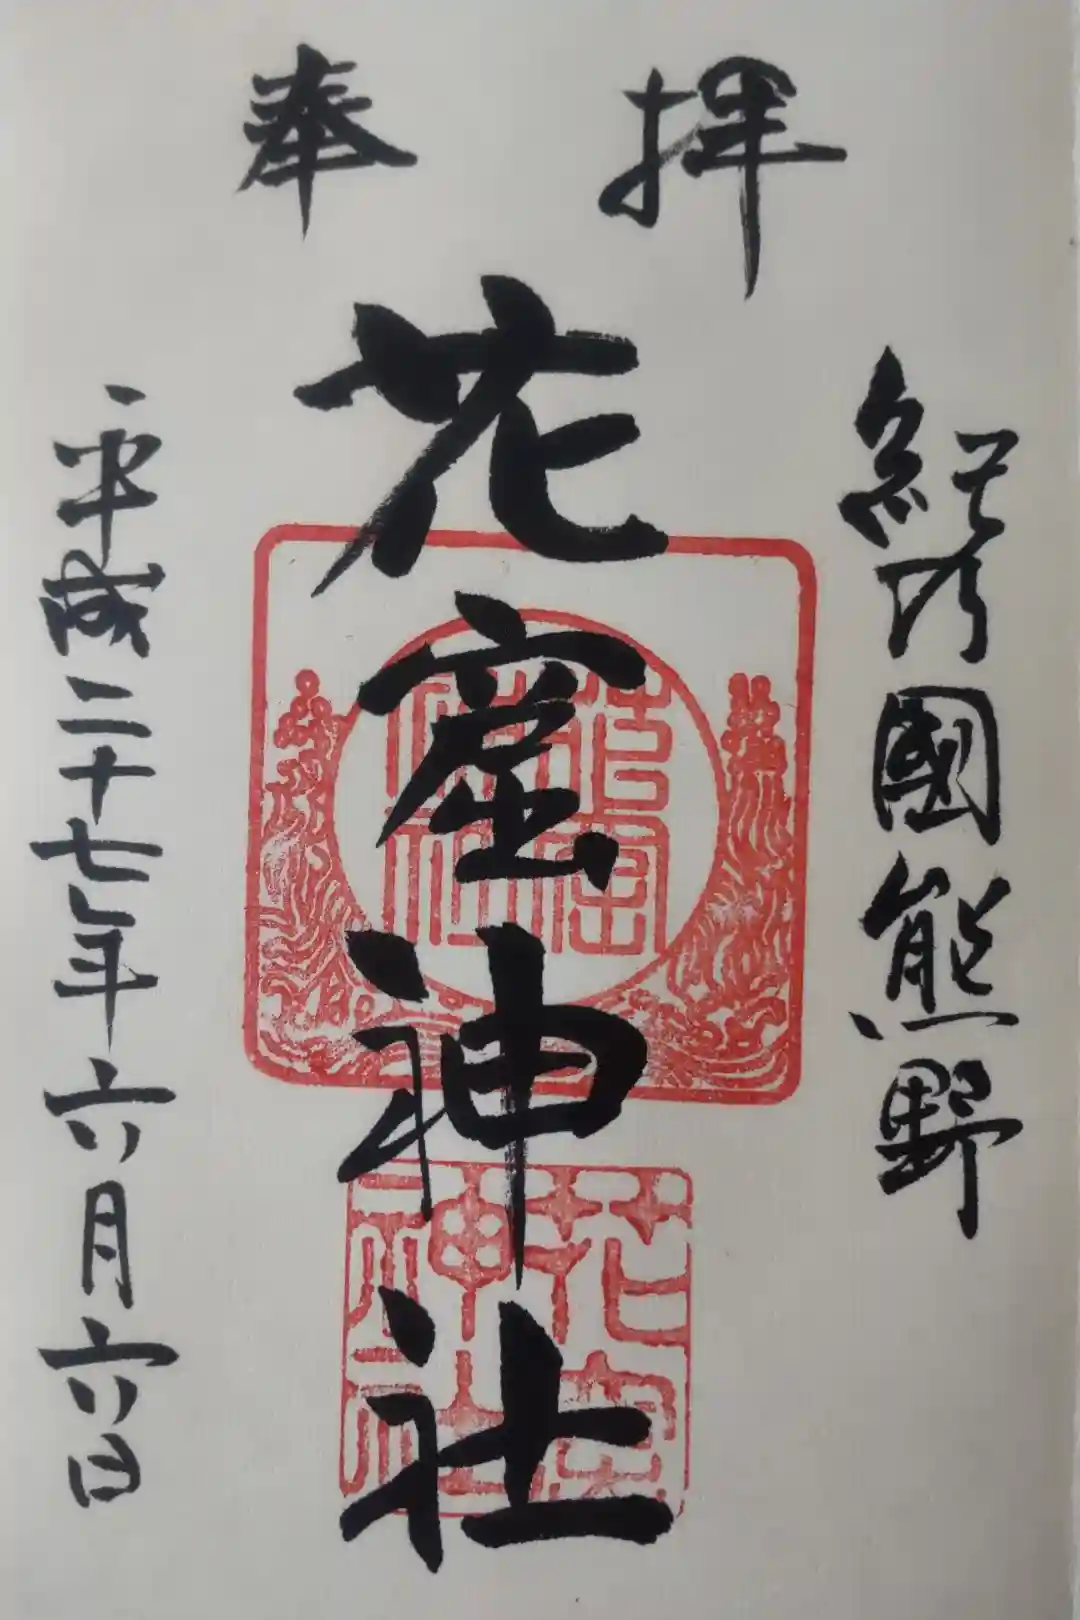 奉拝
紀伊國熊野
花窟神社
平成二十七年六月六日
花窟神社
花窟神社